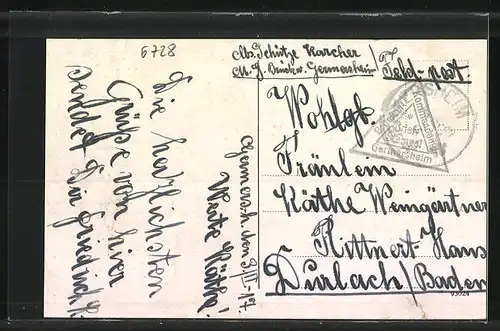 6728
Abs. Schütze Karcher
M. G. Druckw. Germersheim
Feld-post
Wohlgb.
Fräulein
Käthe Weingärtner
Rittnert-Haus
Durlach/Baden
Germersheim
Germersh. den 9.III.-17.
Werte Käthe!
die herzlichsten
Grüße von hier
sendet Dir Friedrich K.